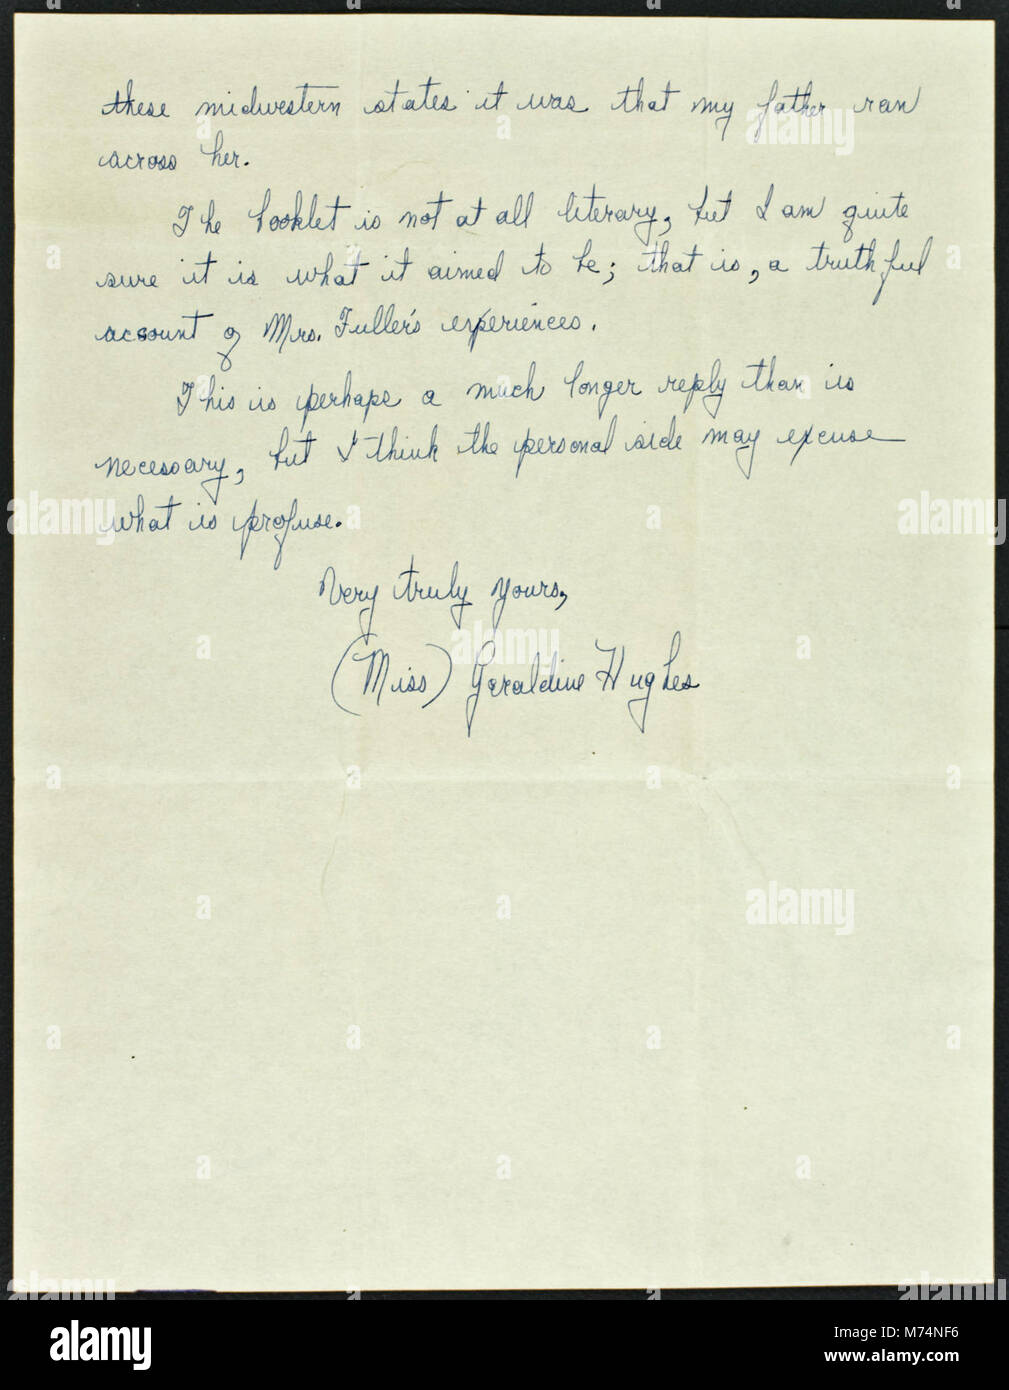 these midwestern states it was that my father ran
across her.
The booklet is not at all literary, but I am quite
sure it is what it aimed to be; that is, a truthful
account of Mrs. Fuller's experiences.
This is perhaps a much longer reply than is
necessary, but I think the personal side may excuse
what is profuse.
Very truly yours,
(Miss) Geraldine Hughes
alamy
Image ID: M74NF6
www.alamy.com